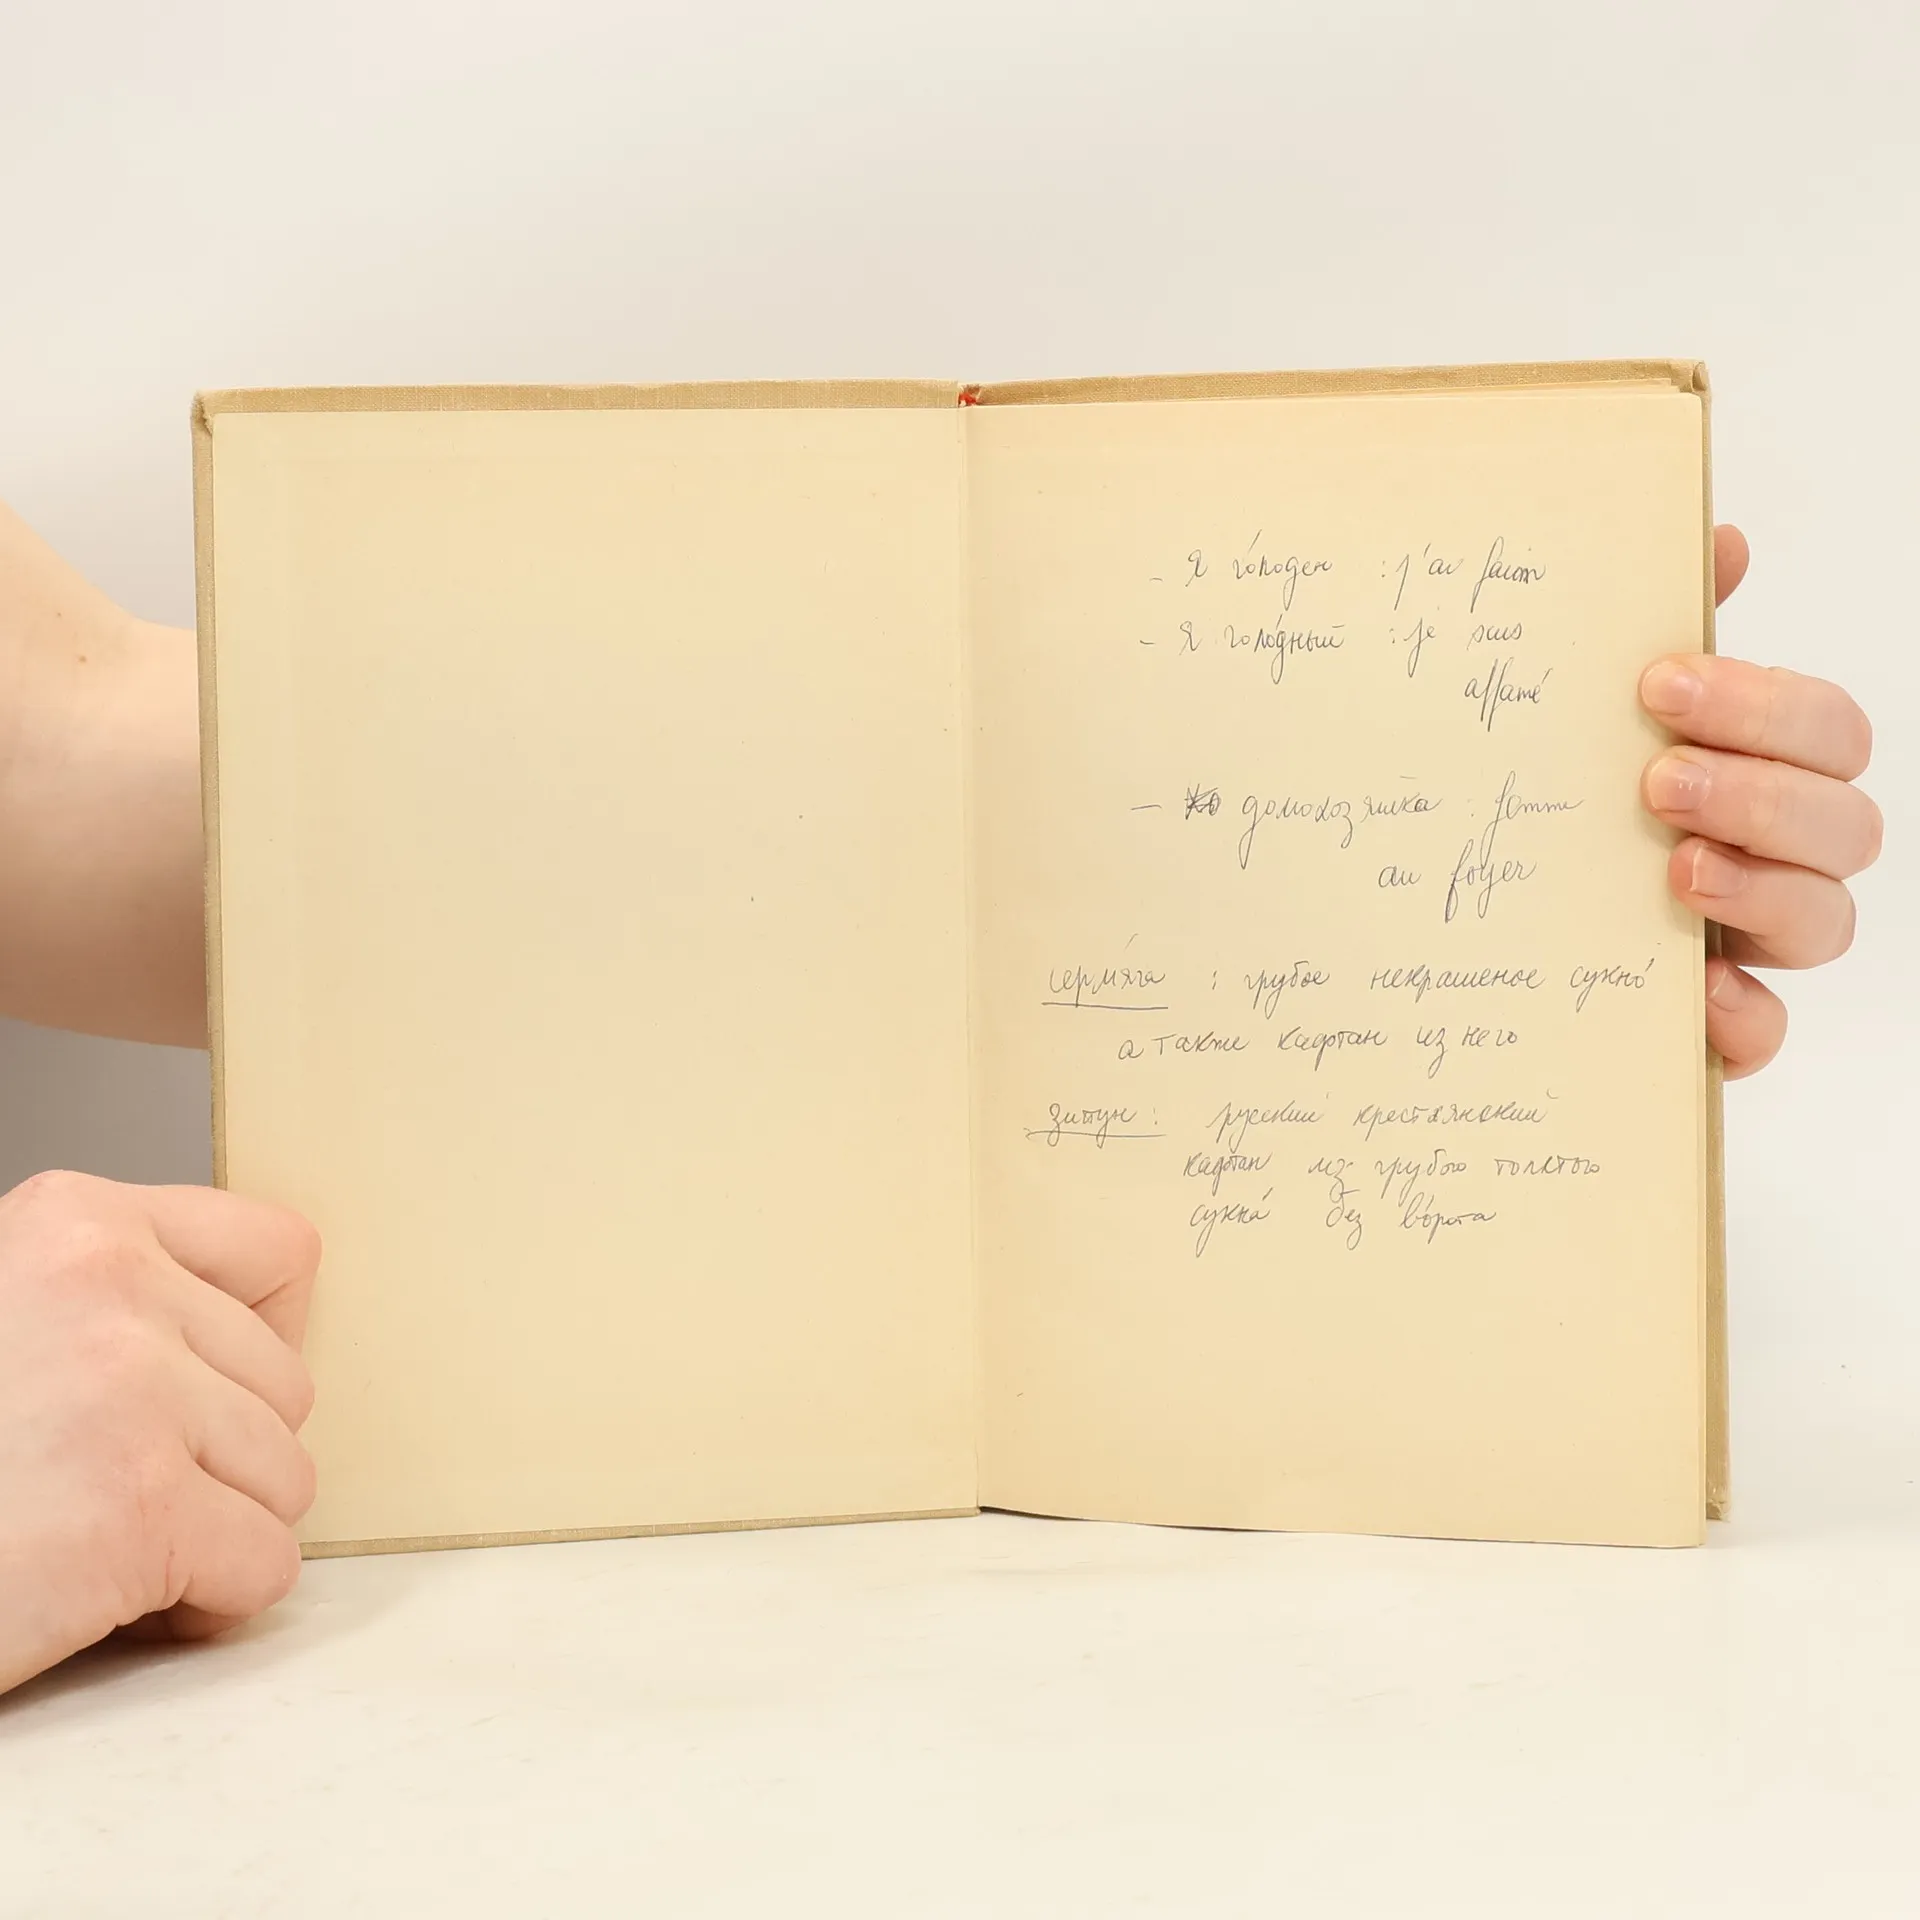 - Я го́лоден : j'ai faim
- Я голо́дный : je suis
affamé
- домохозяйка : femme
au foyer
сермя́га : грубое некрашеное сукно́
а также кафтан из него
Зипун : русский крестьянский
кафтан из грубого толстого
сукна́ без во́рота